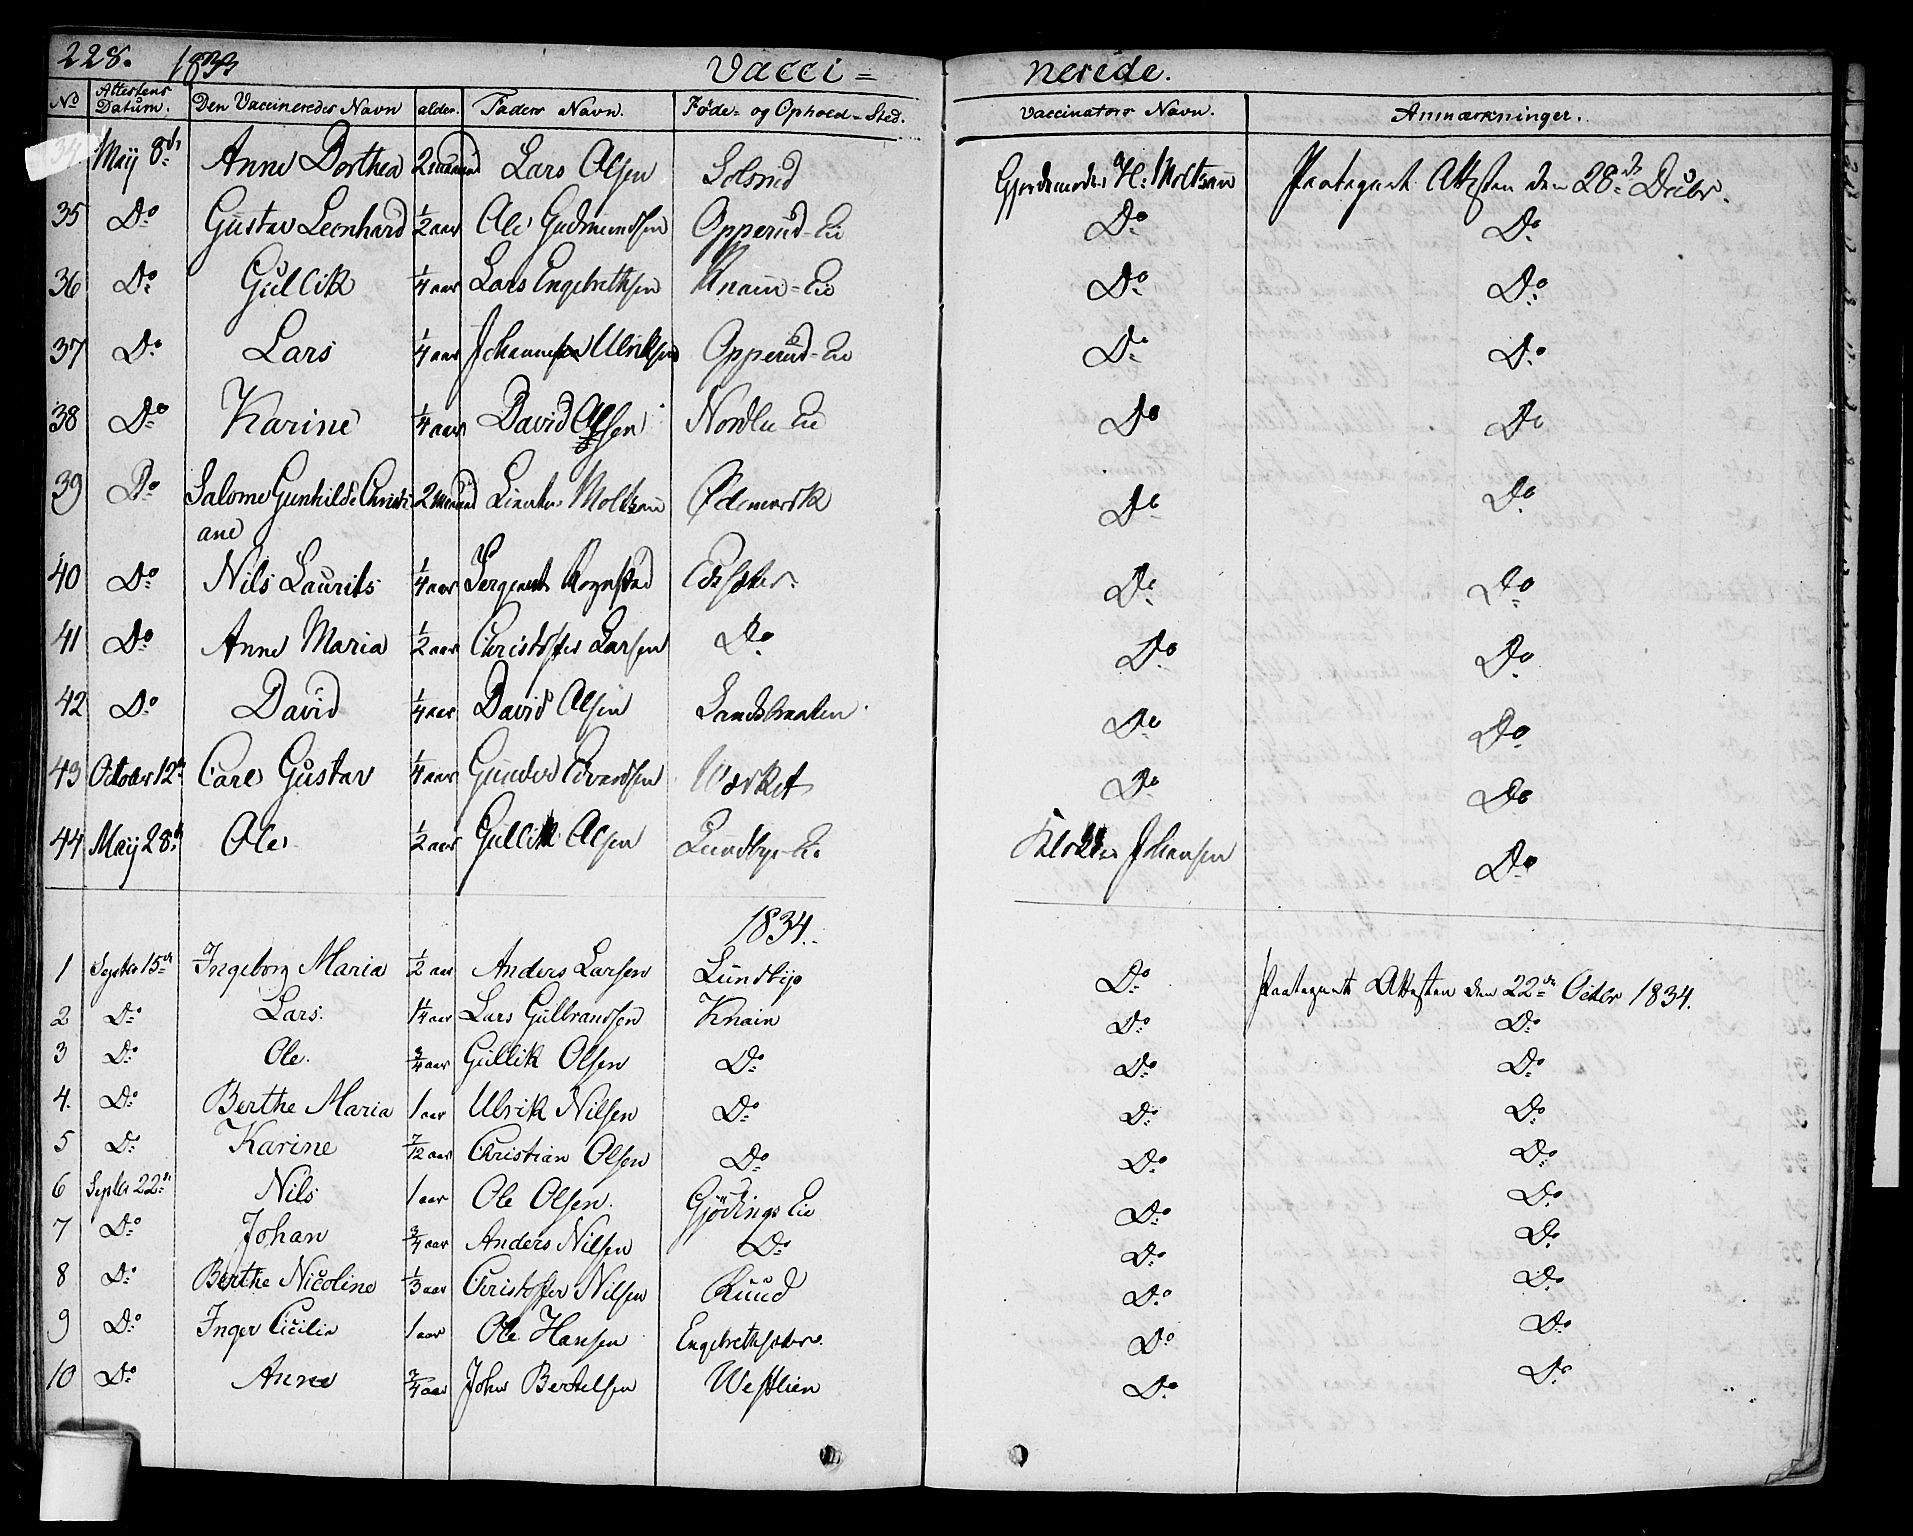 228. 1833 Vacci= nerede.
No Attestens Datum. Den Vaccineredes Navn alder. Faders Navn. Føde- og Ophold-Sted. Vaccinators Navn. Anmærkninger.
34 May 8de Anne Dorthea 2 maaned Lars Olsen Solsrud H: Moltzau Attesten den 28de Decbr.
35 Do Gustav Leonhard 1/2 aar Ole Gudmundsen Opperud-Eie Do Do
36 Do Gullik 1/4 aar Lars Engebrethsen Knain-Eie Do Do
37 Do Lars 1/4 aar Johannes Ulriksen Opperud-Eie Do Do
38 Do Karine 1/4 aar David Olsen Nordlie Eie Do Do
39 Do Salome Gunhilde Christi 2 maaned Moltzau Ødemark Do Do
ane
40 Do Nils Laurits 1/4 aar Sergeant Rognstad Do Do
41 Do Anne Maria 1/2 aar Christoffer Larsen Do Do Do
42 Do David 1/4 aar David Olsen Sandsbraaten Do Do
43 October 12te Carl Gustav 1/4 aar Gunder Værket Do Do
44 May 28de Ole 1/2 aar Gullik Olsen Lundbye-Eie Klokker Johansen Do
1834.
1 Septbr 15de Ingeborg Maria 1/2 aar Anders Larsen Lundbye Do Paategnet Attesten den 22de Octbr 1834.
2 Do Lars. 1 1/4 aar Lars Gulbrandsen Knain Do Do
3 Do Ole. 3/4 aar Gullik Olsen Do Do Do
4. Do Berthe Maria 1 aar Ulrik Nilsen Do Do Do
5 Do Karine 7/12 aar Christian Olsen Do Do Do
6 Septbr 22de Nils 1 aar Ole Olsen. Gjödings Eie Do Do
7 Do Johan 3/4 aar Anders Nilsen Do Do Do
8 Do Berthe Nicoline 1/3 aar Christoffer Nilsen Ruud Do Do
9 Do Inger Cicilia 1 aar Ole Hansen Engebrethsæter. Do Do
10 Do Anne 3/4 aar John Bertelsen Westlien Do Do